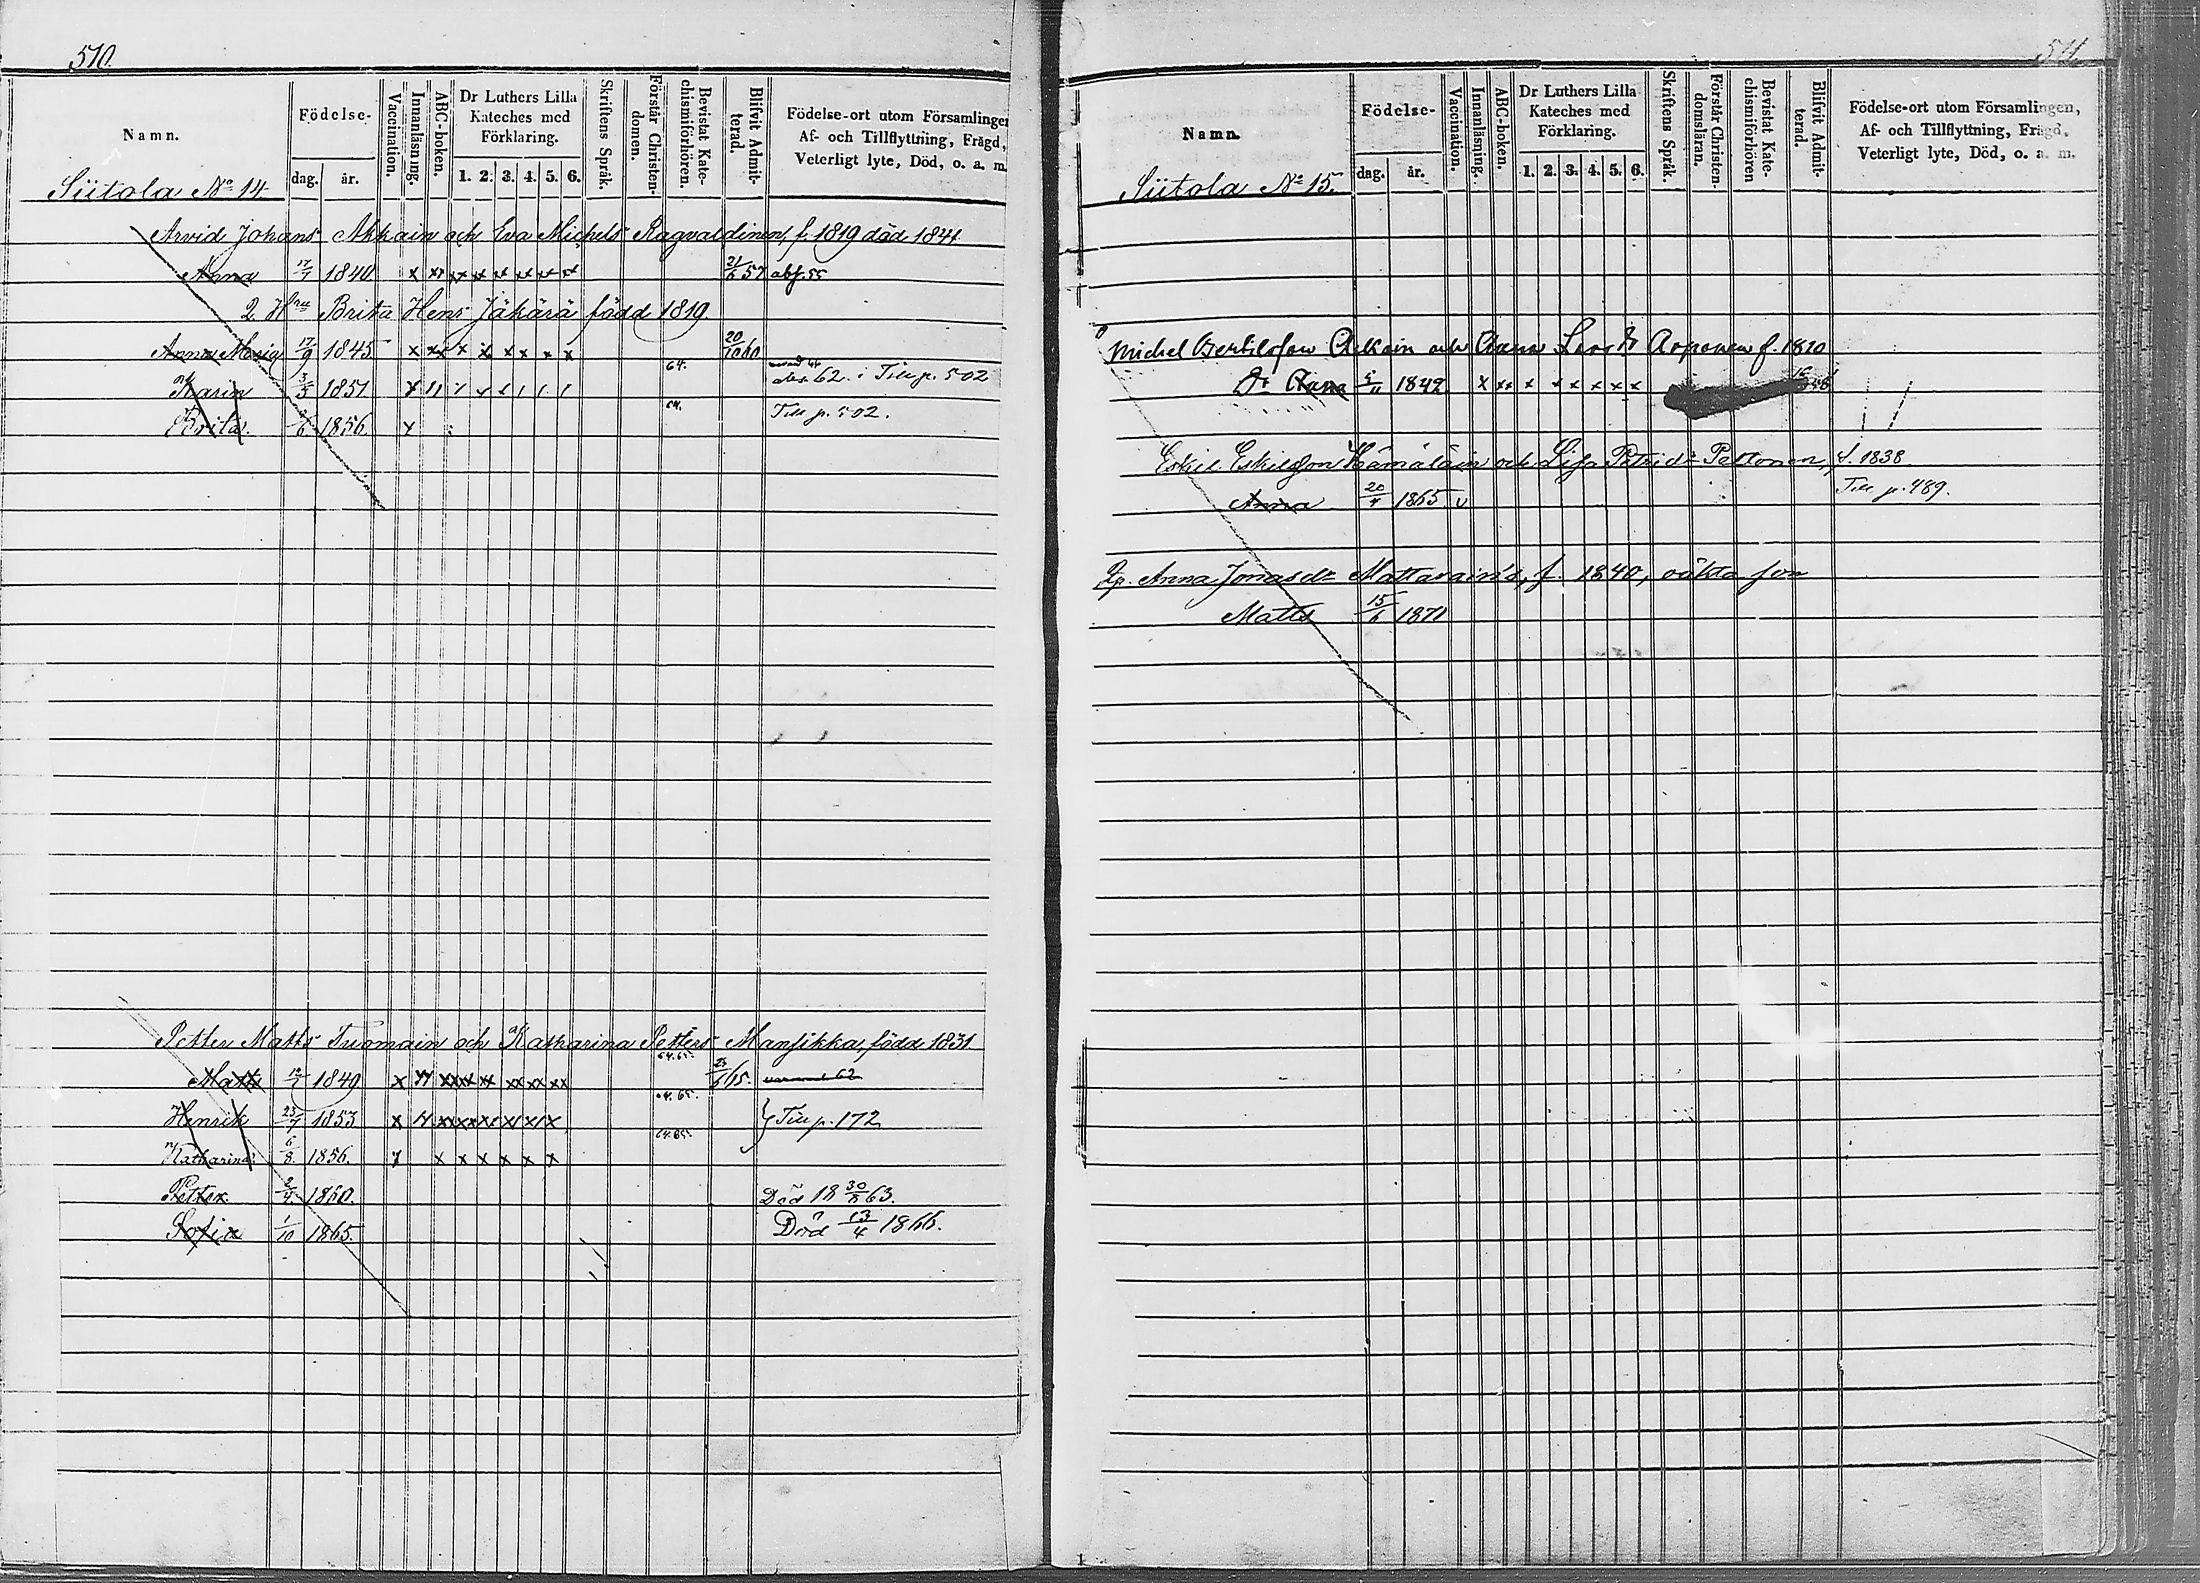 510.
Namn.
Födelse-
dag.
år.
Vaccination.
Innanläsning.
ABC-boken.
Dr Luthers Lilla
Kateches med
Förklaring.
1. 2. 3. 4. 5. 6.
Skriftens Språk.
Förstår Christen-
domen.
Bevistat Kate-
chismiförhören.
Blifvit Admit-
terad.
Födelse-ort utom Församlingen
Af- och Tillflyttning, Frägd,
Veterligt lyte, Död, o. a. m.
Siitola No 14.
Arvid Johans Akkain och Eva Michels Ragvaldinen, f. 1819 död 1841
Anna 1840 x 21/6 57 abs. 55
2. Hru Brita Hens Jäkärä född 1819.
Anna Maria 17/9 1845 x x x x x x x 20/10 60
Karin 3/3 1851 64. 62. i Till p. 502
Brita 1856. 64. Till p. 502.
Petter Matts Tuomain och Katharina Petters Mansikka, född 1831
Matts 1849 64.65. 65.
Henrik 23/7 1853 65. Till p. 172
Katharina 6/8 1856. x x x x x x 64.65.
Petter 2/4 1860. Död 18 63.
Sofia 1/10 1865. Död 13/4 1866.
511.
Namn.
Födelse-
dag.
år.
Vaccination.
Innanläsning.
ABC-boken.
Dr Luthers Lilla
Kateches med
Förklaring.
1. 2. 3. 4. 5. 6.
Skriftens Språk.
Förstår Christen-
domsläran.
Bevistat Kate-
chismiförhören
Blifvit Admit-
terad.
Födelse-ort utom Församlingen,
Af- och Tillflyttning, Frägd,
Veterligt lyte, Död, o. a. m.
Siitola No 15.
Michel Bertilsson Akkain och Anna Larsdr Arponen f. 1810
Dr Anna 1842 x xx x x x x x x
Eskil Eskilsson Hämäläin och Lisa Petridr Peltonen, f. 1838
Anna 20/4 1865 v Till p. 489.
Anna Jonasdr Mattarain's, f. 1840, oäkta son
Matts 15/6 1871